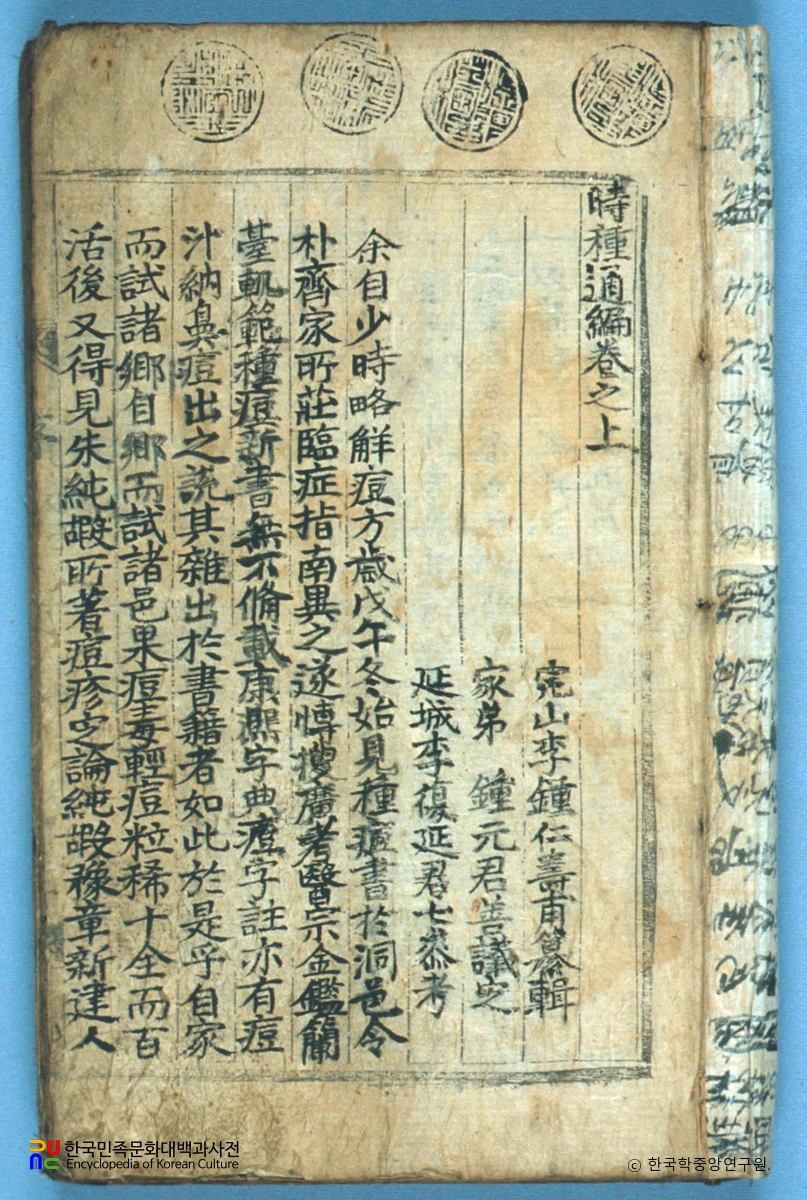 時種通編卷之上
完山李鍾仁壽甫纂輯
家弟 鍾元君善議定
延城李復延君七叅考
余自少時略觧痘方歲戊午冬始見種痘書於洞邑令
朴齊家所莊臨症指南異之遂慱搜廣考醫宗金鑑蘭
䑓軌範種痘新書無不俻載康熙字典痘字註亦有痘
汁納鼻痘出之說其雜出於書籍者如此於是乎自家
而試諸鄉自鄉而試諸邑果痘毒輕痘粒稀十全而百
活後又得見朱純嘏所著痘疹定論純嘏豫章新建人
한국민족문화대백과사전
Encyclopedia of Korean Culture
ⓒ 한국학중앙연구원.